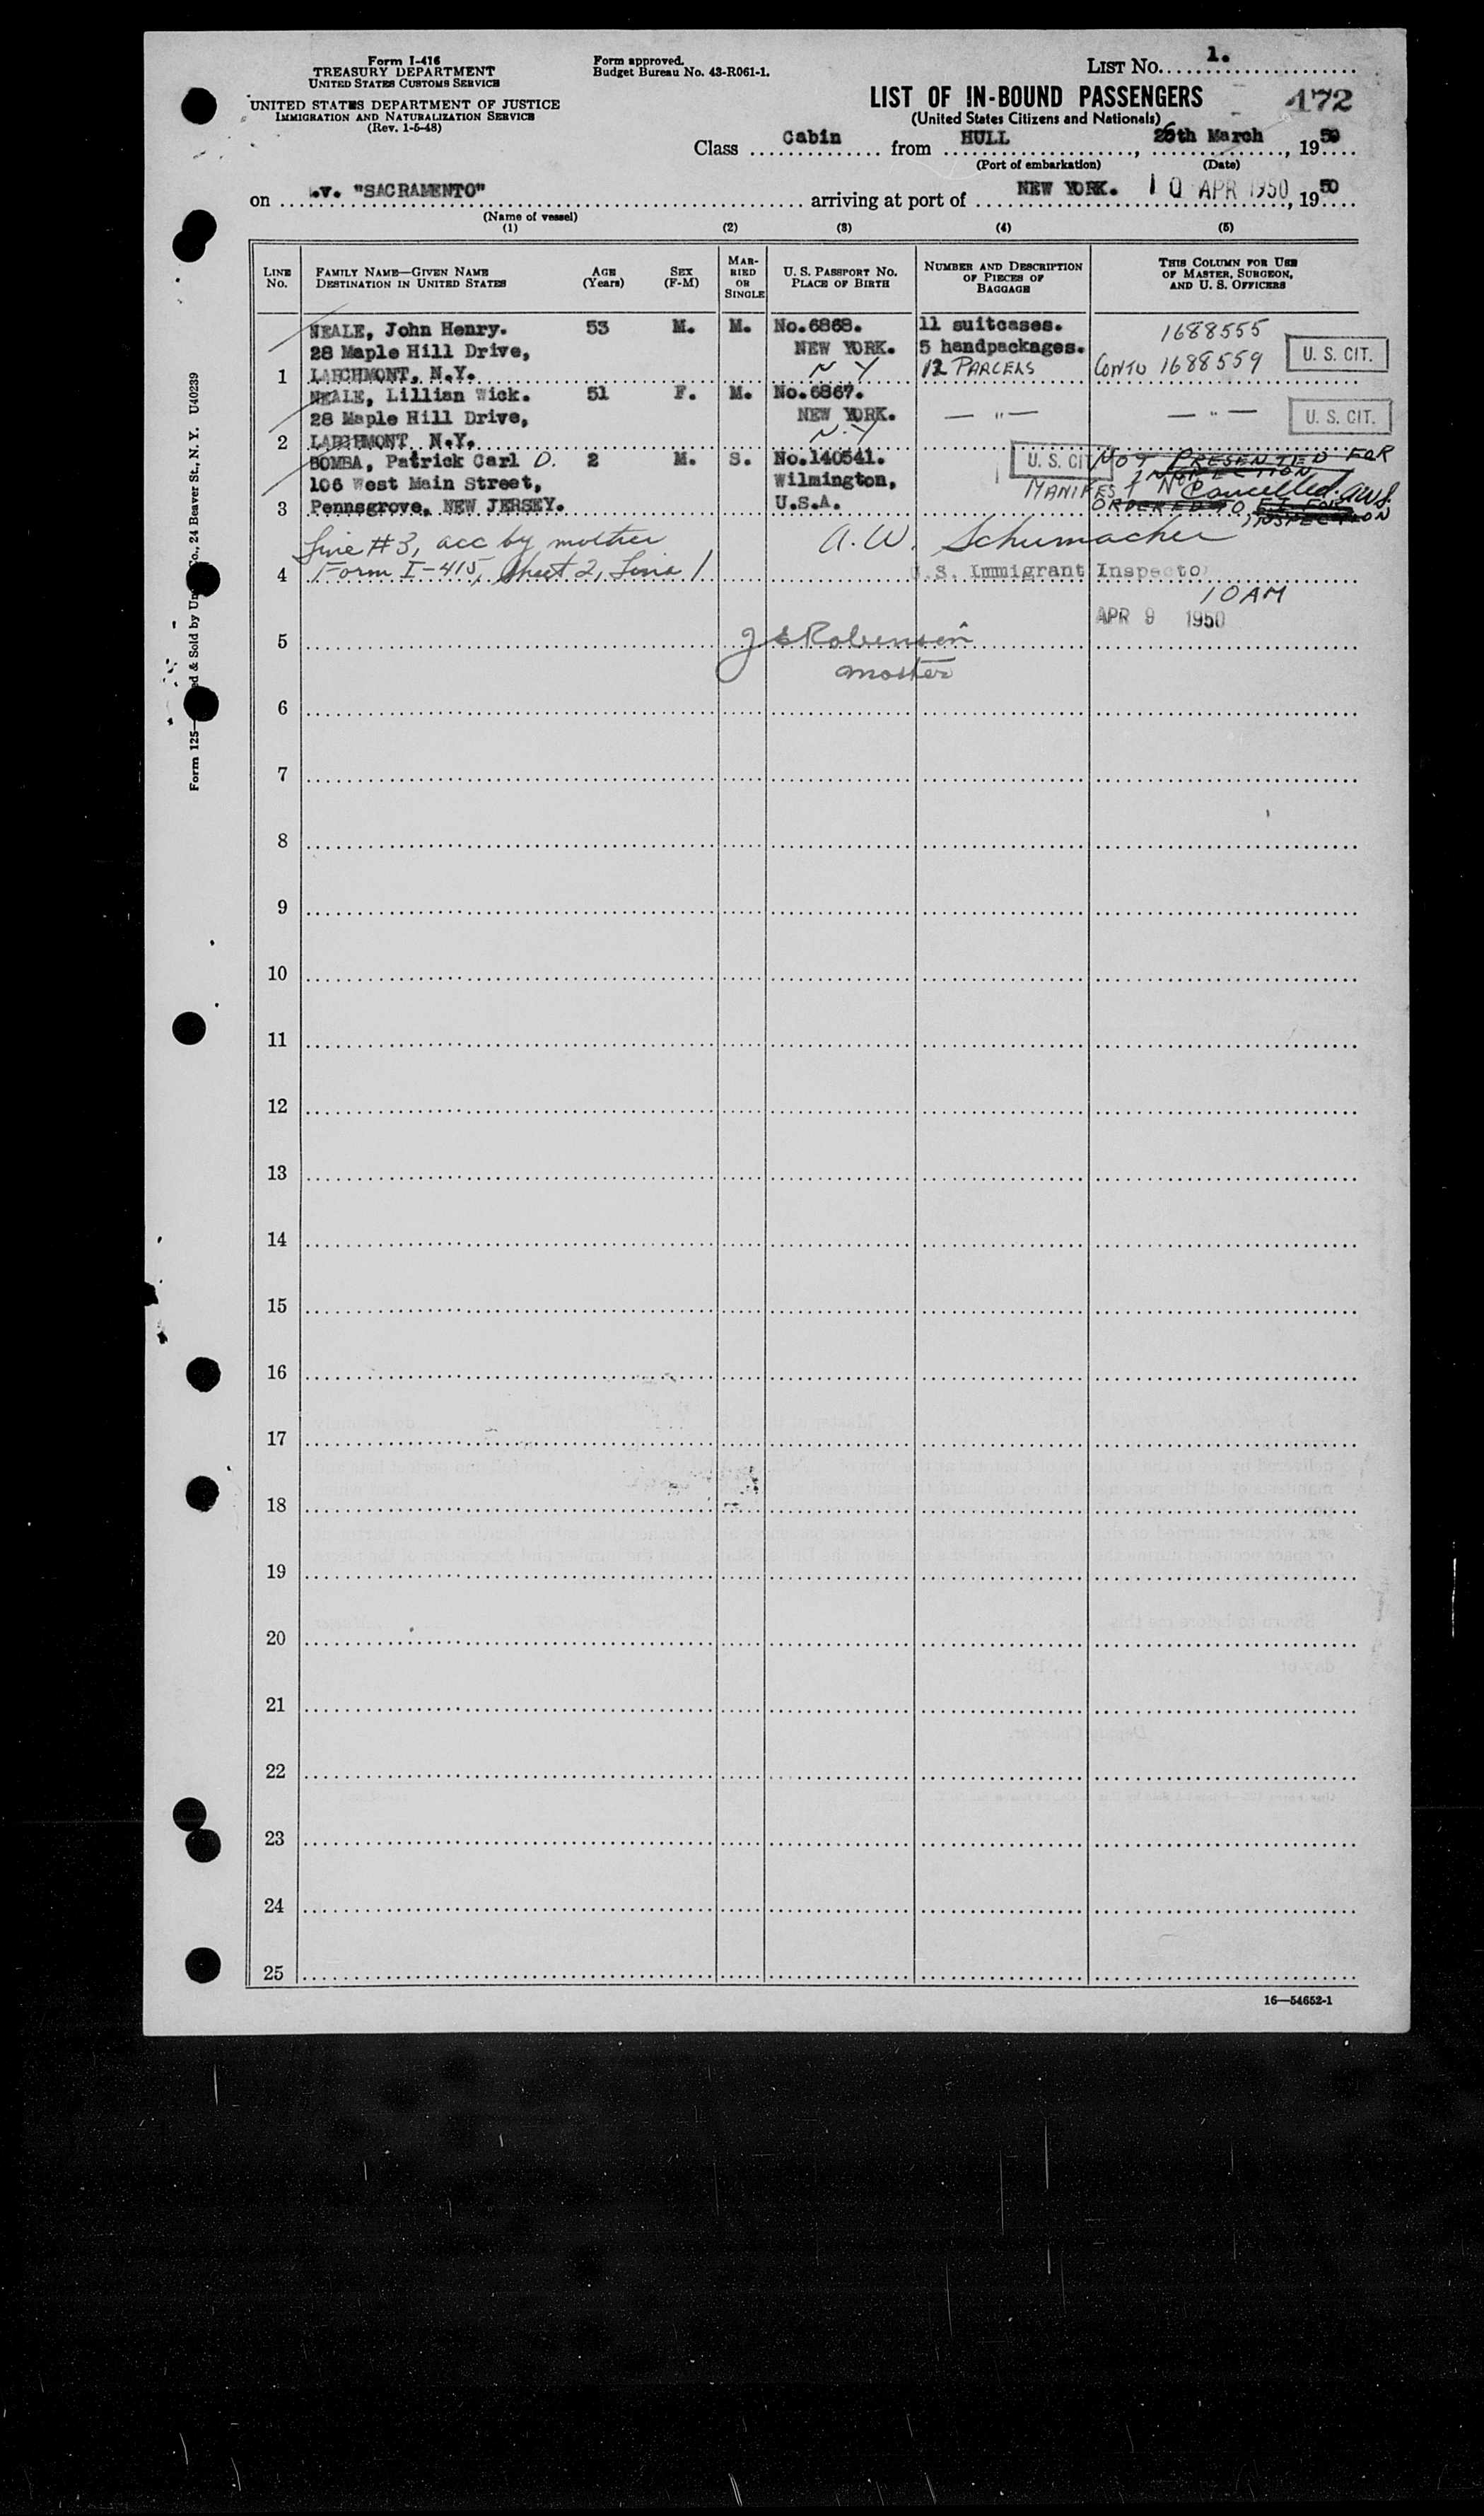 Form I-416
TREASURY DEPARTMENT
UNITED STATES CUSTOMS SERVICE
UNITED STATES DEPARTMENT OF JUSTICE
IMMIGRATION AND NATURALIZATION SERVICE
(Rev. 1-5-48)
Form approved.
Budget Bureau No. 43-R061-1.
LIST No. 1.
LIST OF IN-BOUND PASSENGERS 172
(United States Citizens and Nationals)
Class Cabin from HULL, 26th March, 1950
(Port of embarkation) (Date)
on .v. "SACRAMENTO" arriving at port of NEW YORK. 10 APR 1950, 1950
(Name of vessel)
(1) (2) (3) (4) (5)
LINE No. FAMILY NAME—GIVEN NAME DESTINATION IN UNITED STATES AGE (Years) SEX (F-M) MARRIED OR SINGLE U. S. PASSPORT NO. PLACE OF BIRTH NUMBER AND DESCRIPTION OF PIECES OF BAGGAGE THIS COLUMN FOR USE OF MASTER, SURGEON, AND U. S. OFFICERS
NEALE, John Henry. 53 M. M. No.6868. 11 suitcases. 1688555
28 Maple Hill Drive, NEW YORK. 5 handpackages. U. S. CIT.
1 LARCHMONT, N.Y. N Y 12 PARCELS CONTO 1688559
NEALE, Lillian Wick. 51 F. M. No.6867.
28 Maple Hill Drive, NEW YORK. — " — — " — U. S. CIT.
2 LARCHMONT, N.Y. N.Y
BOMBA, Patrick Carl D. 2 M. S. No.140541. U. S. CIT NOT PRESENTED FOR
INSPECTION
106 West Main Street, Wilmington, MANIFEST Cancelled. AWS.
3 Pennsgrove, NEW JERSEY. U.S.A. ORDERED TO EI FOR
INSPECTION
Line #3, acc by mother A. W. Schumacher
4 Form I-415, Sheet 2, Line 1 U.S. Immigrant Inspector
10 AM
APR 9 1950
5 J S Robinson
Master
6
7
8
9
10
11
12
13
14
15
16
17
18
19
20
21
22
23
24
25
16—54652-1
Form 125— ed & Sold by Un Co., 24 Beaver St., N. Y. U40239